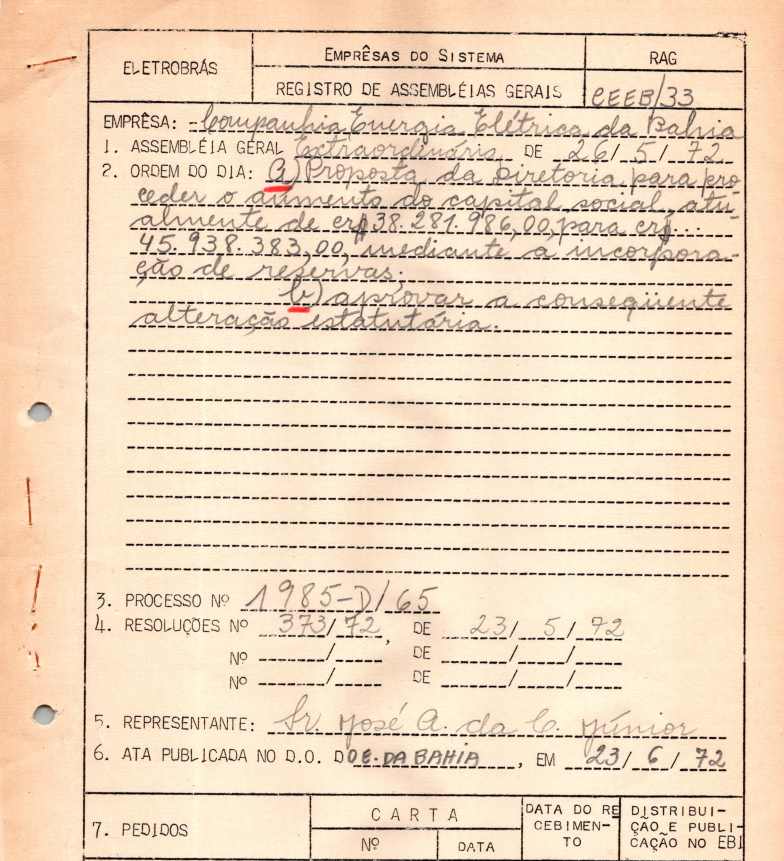 ELETROBRÁS
EMPRÊSAS DO SISTEMA
RAG
REGISTRO DE ASSEMBLÉIAS GERAIS
CEEB/33
EMPRÊSA: - Companhia Energia Elétrica da Bahia
1. ASSEMBLÉIA GERAL Extraordinária, DE 26/5/72
2. ORDEM DO DIA: a) Proposta da Diretoria para pro
ceder o aumento do capital social, atu-
almente de cr$38.281.986,00, para cr$...
45.938.383,00, mediante a incorpora-
ção de reservas;
b) aprovar a conseqüente
alteração estatutária.
3. PROCESSO Nº 1985-D/65
4. RESOLUÇÕES Nº 373/72, DE 23/5/72
Nº ______/_____ DE _____/____/____
Nº ______/_____ DE _____/____/____
5. REPRESENTANTE: Sr. José A. da C. Júnior
6. ATA PUBLICADA NO D.O. DO E. DA BAHIA, EM 23/6/72
7. PEDIDOS
CARTA
DATA DO RE
CEBIMEN-
TO
DISTRIBUI-
ÇÃO E PUBLI-
CAÇÃO NO EBI
Nº
DATA